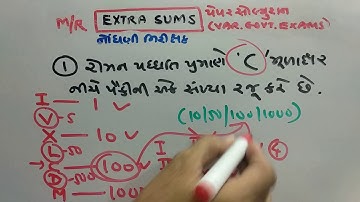 M/R EXTRA SUMS પેપર સોલ્યુશન
(VAR. GOVT. EXAMS)
① રોમન પધ્ધતિ પ્રમાણે 'C' મૂળાક્ષર
નીચે પૈકીની એક સંખ્યા રજૂ કરે છે.
(10/50/100/1000)
I — 1 ✓
V - 5
X — 10 ✓
L - 50
100
D - 500
M — 100